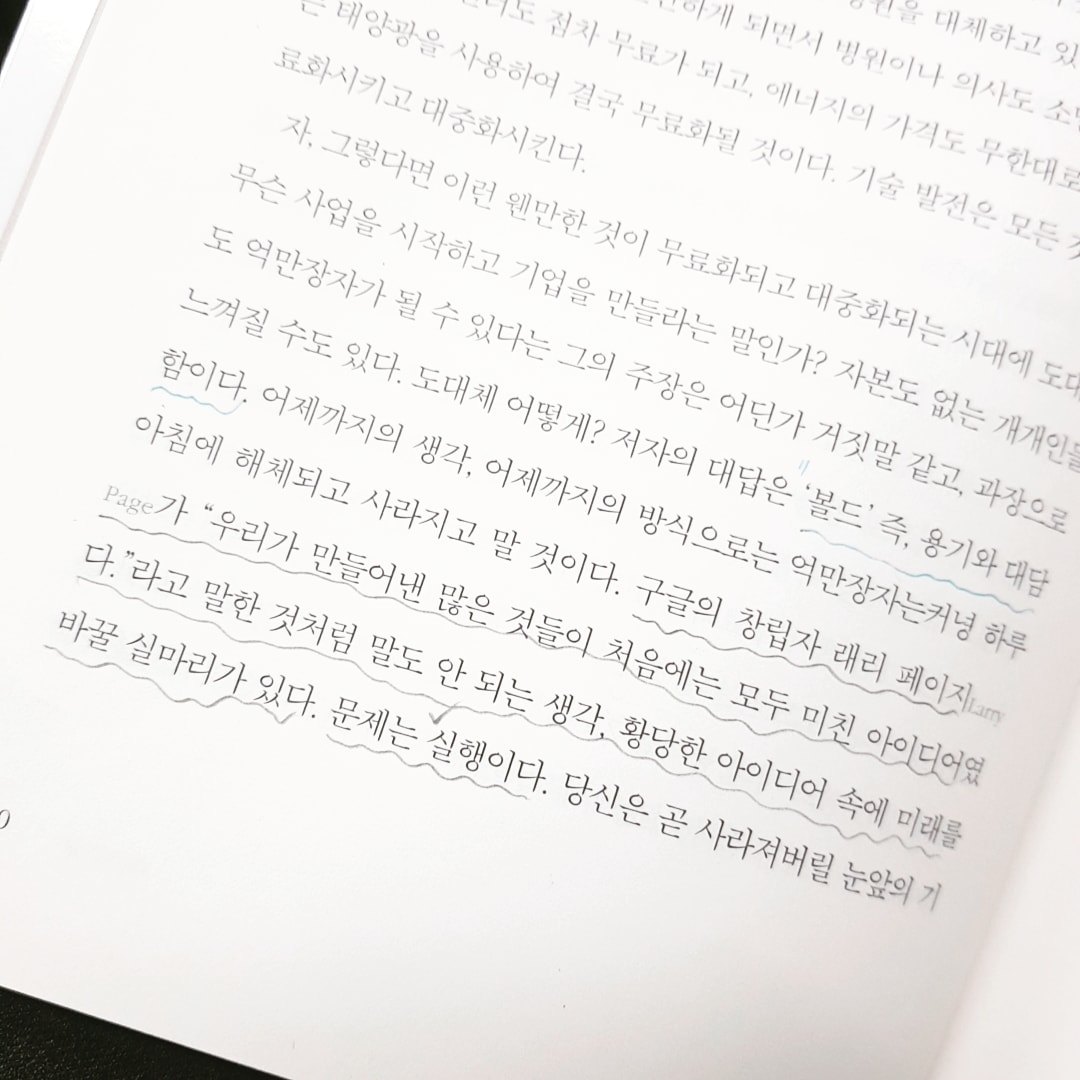 대체하고
되면서 병원이나 의사도
점차 무료가 되고, 에너지의 가격도 무한대로
은 태양광을 사용하여 결국 무료화될 것이다. 기술 발전은 모든
료화시키고 대중화시킨다.
자, 그렇다면 이런 웬만한 것이 무료화되고 대중화되는 시대에 도대
무슨 사업을 시작하고 기업을 만들라는 말인가? 자본도 없는 개개인들
도 억만장자가 될 수 있다는 그의 주장은 어딘가 거짓말 같고, 과장으로
느껴질 수도 있다. 도대체 어떻게? 저자의 대답은 ‘볼드’ 즉, 용기와 대담
함이다. 어제까지의 생각, 어제까지의 방식으로는 억만장자는커녕 하루
아침에 해체되고 사라지고 말 것이다. 구글의 창립자 래리 페이지Larry
Page가 “우리가 만들어낸 많은 것들이 처음에는 모두 미친 아이디어였
다.”라고 말한 것처럼 말도 안 되는 생각, 황당한 아이디어 속에 미래를
바꿀 실마리가 있다. 문제는 실행이다. 당신은 곧 사라져버릴 눈앞의 기